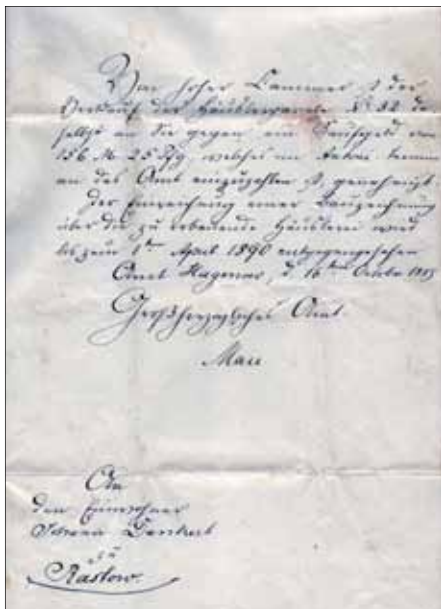 Von hoher Kammer ist der
Verkauf der Häuslerparcele № 32 da
selbst an Sie gegen ein Kaufgeld von
156 M 25 Pfg welches im termin
an das Amt einzuzahlen ist, genehmigt
Der Einreichung einer Bauzeichnung
über die zu erbauende Häuslerei wird
bis zum 1ten April 1890 entgegengesehen
Amt Hagenow, d. 16ten October
Großherzogliches Amt
Mau
An
den Einwohner
zu
Rastow.